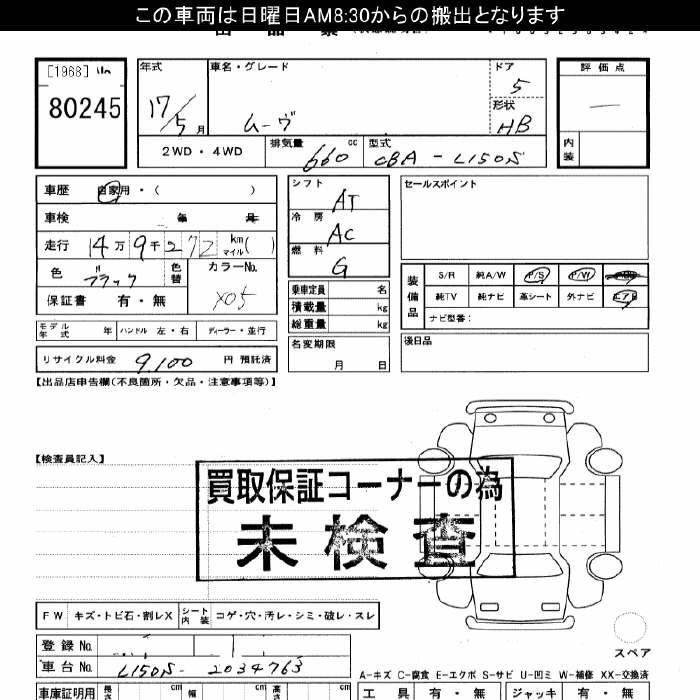 この車両は日曜日AM8:30からの搬出となります
[1968]
80245
年式
17/5月
車名・グレード
ムーヴ
ドア
5
形状
HB
2WD・4WD
排気量
660 cc
型式
CBA-L150S
評価点
―
内装
車歴 自家用・( )
車検 年 月
走行 14万9千272 km マイル( )
色 ブラック 色替
カラーNo.
X05
保証書 有・無
モデル年式 年 ハンドル 左・右 ディーラー・並行
リサイクル料金 9,100 円 預託済
シフト
AT
冷房
AC
燃料
G
乗車定員 名
積載量 kg
総重量 kg
名変期限
月 日
セールスポイント
装備品
S/R 純A/W P/S P/W
純TV 純ナビ 革シート 外ナビ エアB
ナビ型番:
後日品
【出品店申告欄(不良箇所・欠品・注意事項等)】
【検査員記入】
買取保証コーナーの為
未検査
FW キズ・トビ石・割レX シート内装 コゲ・穴・汚レ・シミ・破レ・スレ
スペア
登録No.
車台No. L150S-2034763
A-キズ C-腐食 E-エクボ S-サビ U-凹ミ W-補修 XX-交換済
車庫証明用 長さ cm 幅 cm 高さ cm
工具 有・無 ジャッキ 有・無